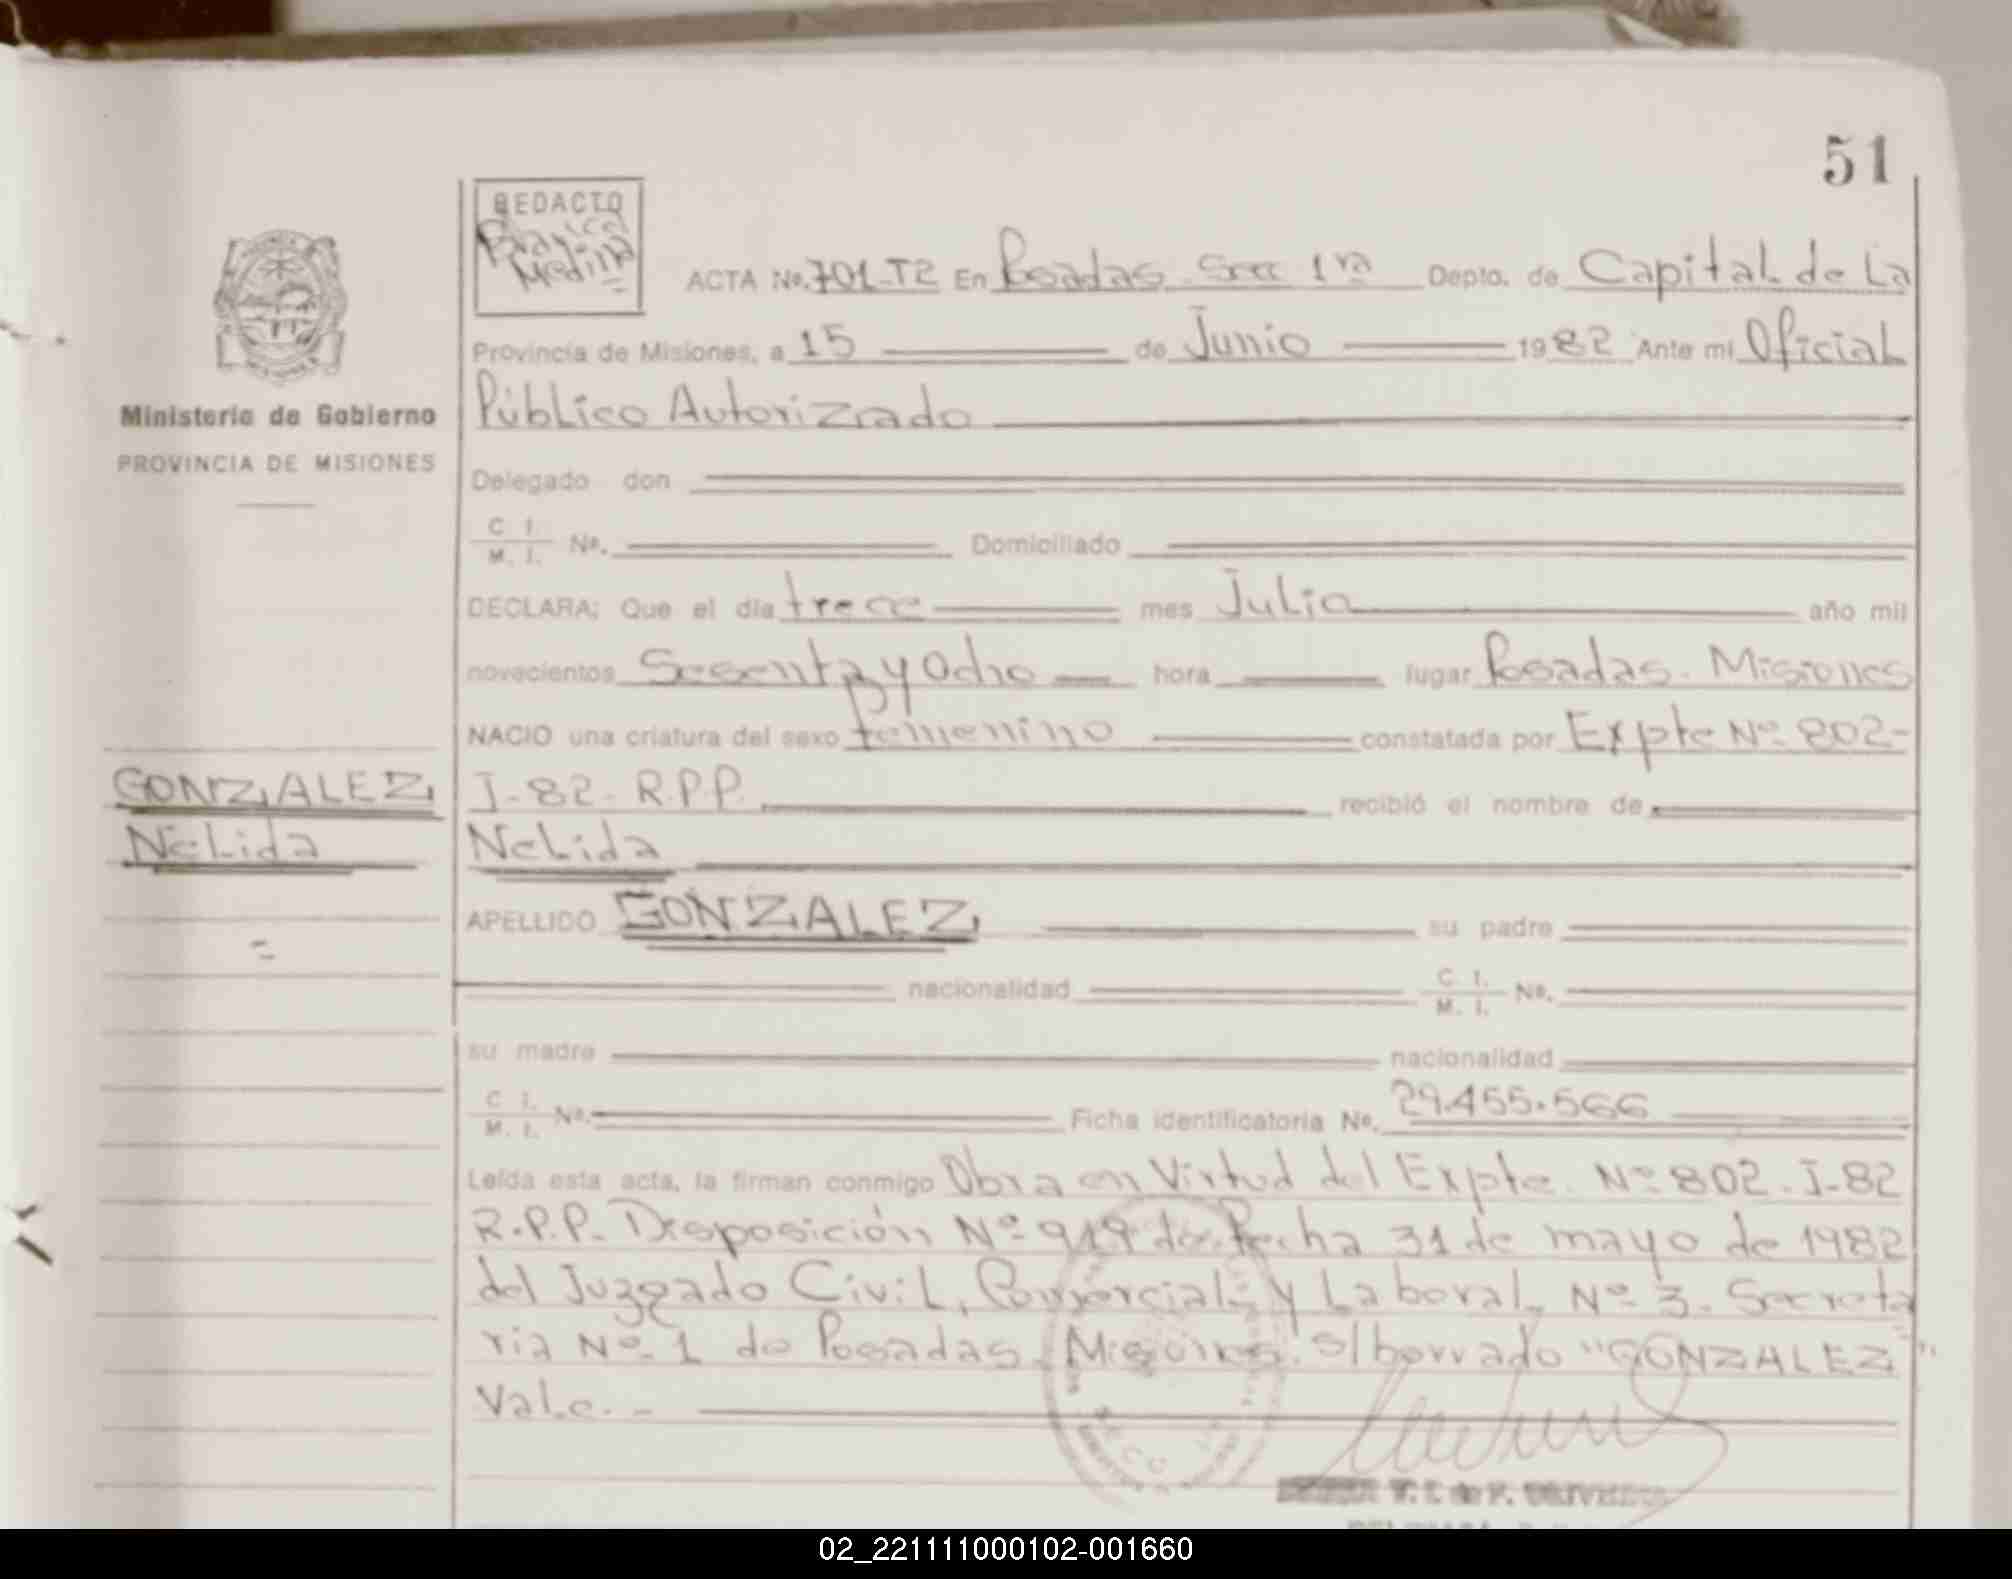 51
REDACTO
Medina
ACTA No. 701-T2 En Posadas Secc 1ra Depto. de Capital de La
Provincia de Misiones, a 15 de Junio 1982 Ante mi Oficial
Público Autorizado
Ministerio de Gobierno
PROVINCIA DE MISIONES
Delegado don
C. I.
M. I. No. Domiciliado
DECLARA; Que el día trece mes Julio año mil
novecientos Sesenta y Ocho hora lugar Posadas. Misiones
NACIO una criatura del sexo femenino constatada por Expte Nº 802-
GONZALEZ
J-82- R.P.P. recibió el nombre de
Nelida
Nelida
APELLIDO GONZALEZ su padre
nacionalidad C. I.
M. I. No.
su madre nacionalidad
C. I.
M. I. No. Ficha identificatoria No. 29.455.566
Leída esta acta, la firman conmigo Obra en Virtud del Expte. Nº 802-J-82
R.P.P. Disposición Nº 919 de fecha 31 de mayo de 1982
del Juzgado Civil, Comercial y Laboral Nº 3. Secreta
ria Nº 1 de Posadas. Misiones. S/borrado "GONZALEZ"
Vale.-
02_221111000102-001660